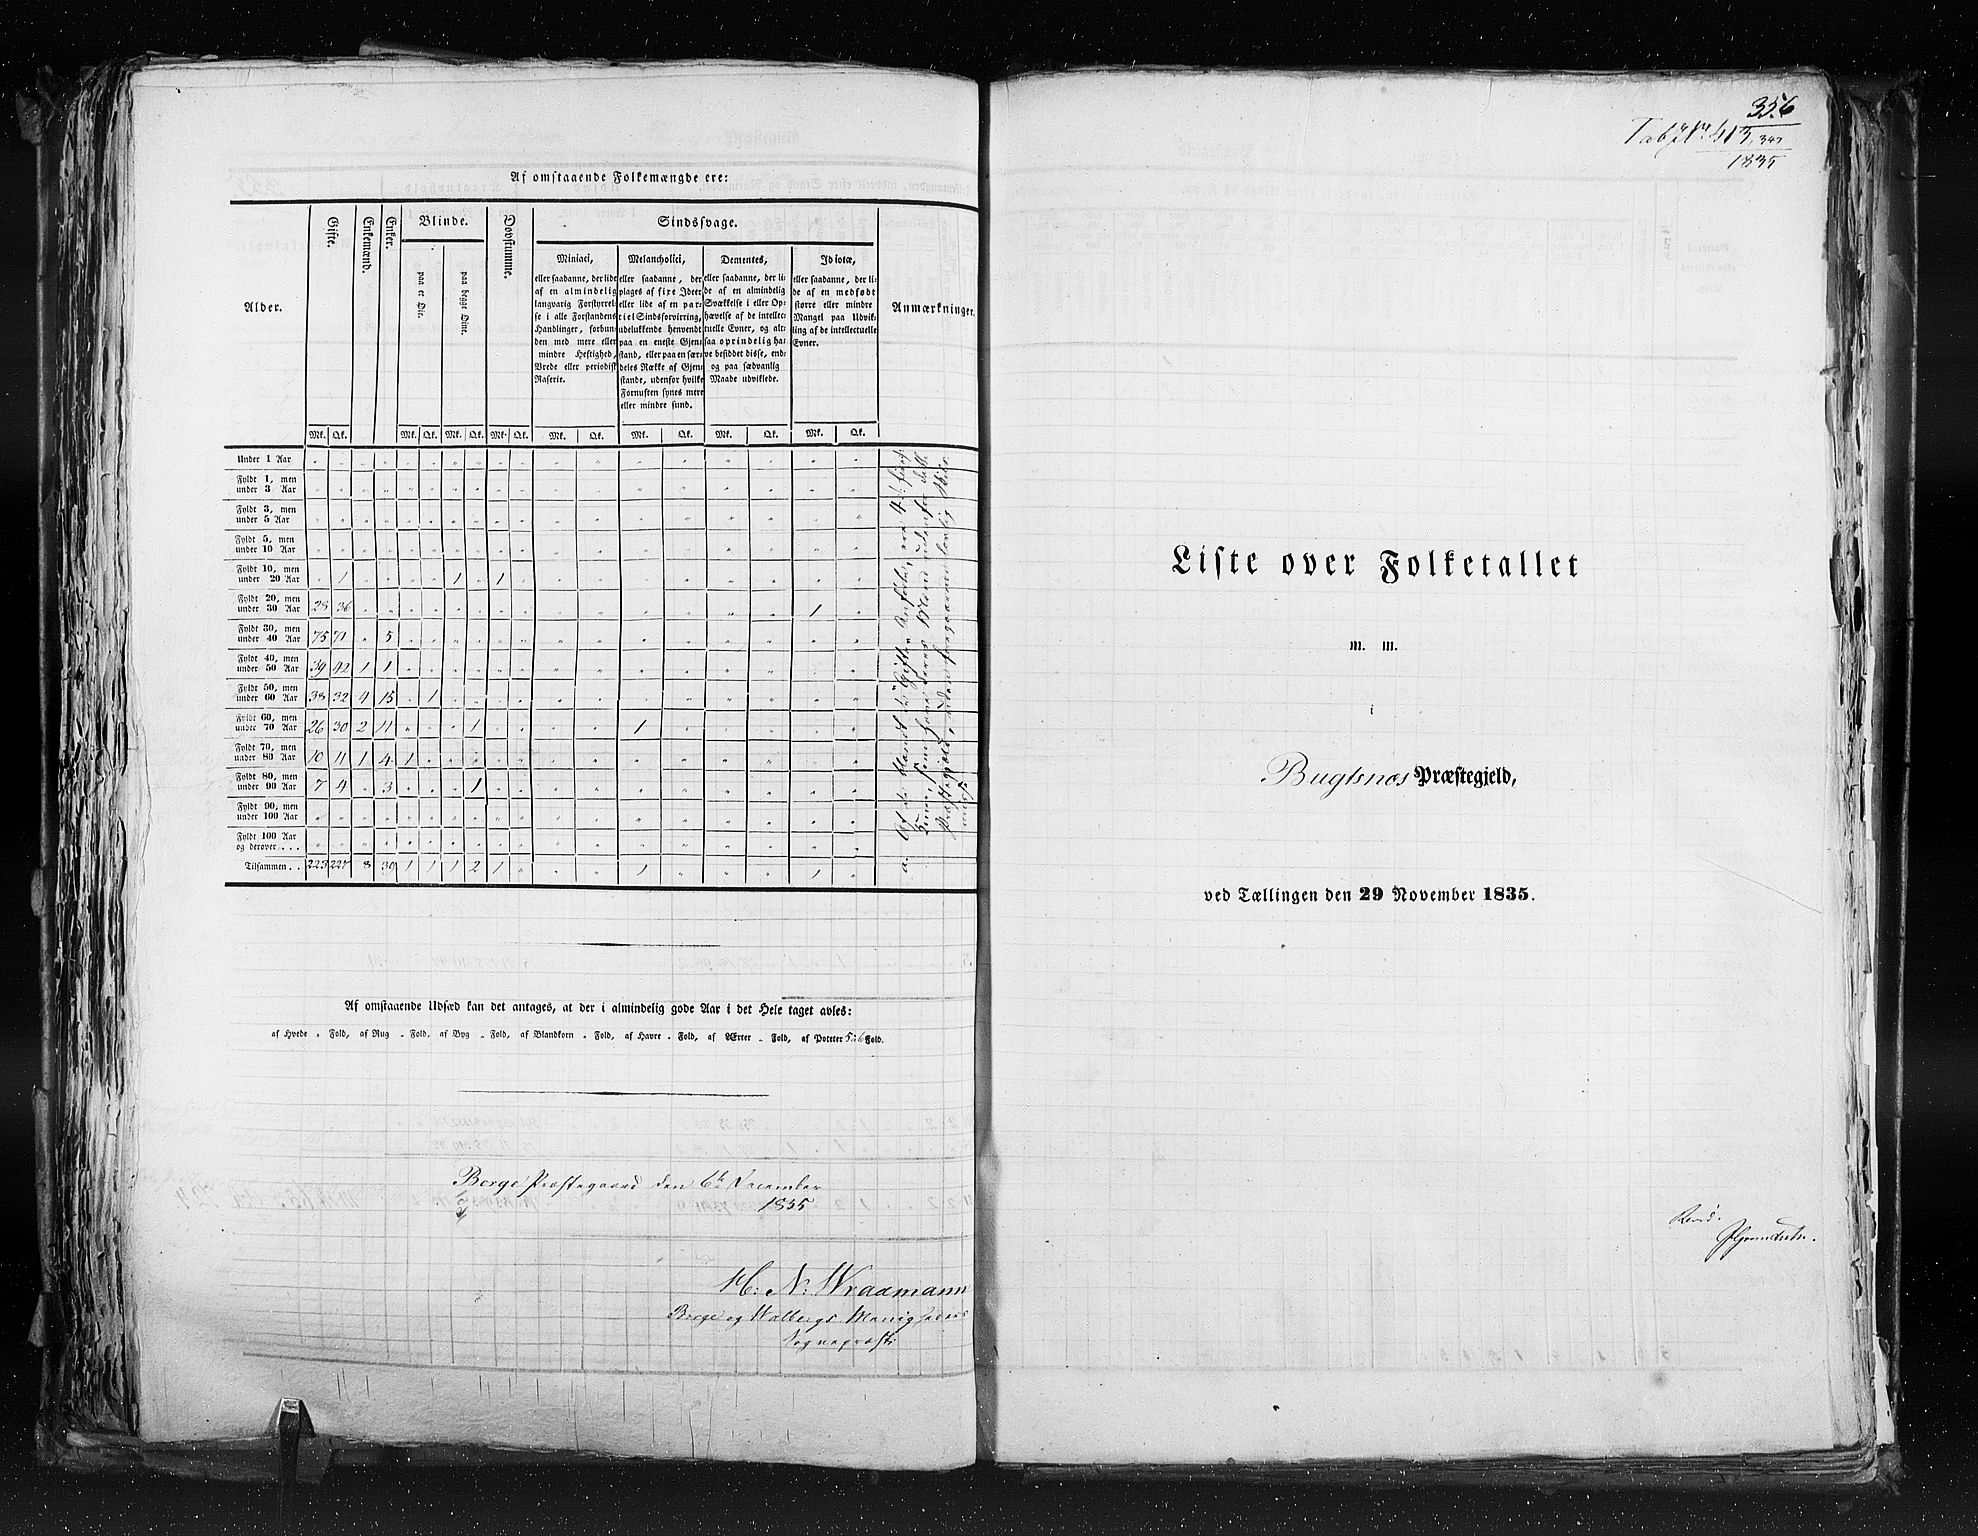 Af omstaaende Folkemængde ere:
Alder. Gifte. Enkemænd. Enker. Blinde. Dovstumme. Sindssvage. Anmærkninger.
paa et Øie. paa begge Øine.
Miniaci, eller saadanne, der lide af en almindelig langvarig Forstyrrelse i alle Forstandens Handlinger, forbunden med mere eller mindre Heftighed, Vrede eller periodisk Raserie.
Melancholici, eller saadanne, der plages af fixe Ideer eller lide af en partiel Sindsforvirring, udelukkende henvendt paa en eneste Gjenstand, eller paa en særdeles Række af Gjenstande, udenfor hvilke Fornuften synes mere eller mindre sund.
Dementes, eller saadanne, der lide af en almindelig Svækkelse i eller Ophævelse af de intellectuelle Evner, og altsaa oprindelig have besiddet disse, endog paa sædvanlig Maade udviklede.
Idiotæ, eller saadanne, der lide af en medfødt større eller mindre Mangel paa Udvikling af de intellectuelle Evner.
Mk. Qk. Mk. Qk. Mk. Qk. Mk. Qk. Mk. Qk. Mk. Qk. Mk. Qk. Mk. Qk.
Under 1 Aar
Fyldt 1, men under 3 Aar
Fyldt 3, men under 5 Aar
Fyldt 5, men under 10 Aar
Fyldt 10, men under 20 Aar " 1 " " " " 1 " 1
Fyldt 20, men under 30 Aar 28 36 1
Fyldt 30, men under 40 Aar 75 71 " 5
Fyldt 40, men under 50 Aar 39 42 1 1
Fyldt 50, men under 60 Aar 38 32 4 15 " 1
Fyldt 60, men under 70 Aar 26 30 2 11 " " " 1 1
Fyldt 70, men under 80 Aar 10 11 1 4 1
Fyldt 80, men under 90 Aar 7 4 " 3 " " " 1
Fyldt 90, men under 100 Aar
Fyldt 100 Aar og derover . . .
Tilsammen . . 223 227 8 39 1 1 1 2 1 " " " 1 " " " 1 "
Af omstaaende Udsæd kan det antages, at der i almindelig gode Aar i det Hele taget avles:
af Hvede " Fold, af Rug " Fold, af Byg " Fold, af Blandkorn " Fold, af Havre " Fold, af Ærter " Fold, af Poteter 5 à 6 Fold.
Borge Præstegaard den 6te December
1835
H: N: Wraamann
Borge og Walbergs Menigheders
Sognepræst
356
413
1835
Liste over Folketallet
m. m.
i
Bugtsnæs Præstegjeld,
ved Tællingen den 29 November 1835.